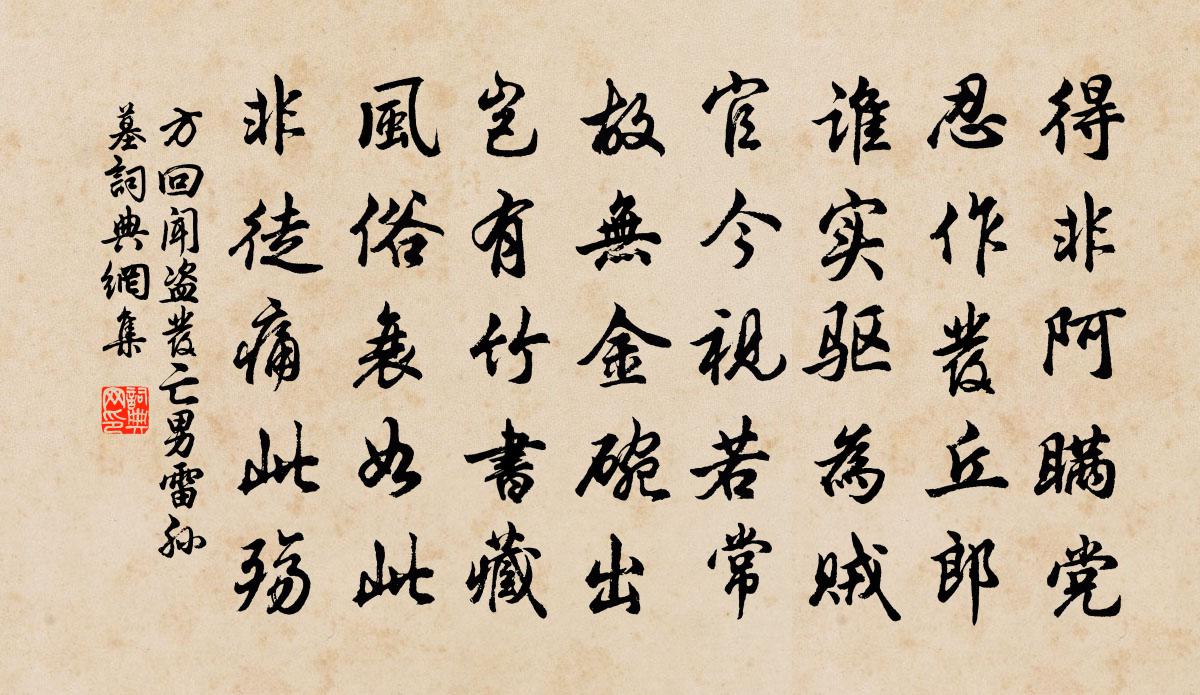 得非阿瞒党
忍作發丘郎
谁实驱為贼
官今視若常
故無金碗出
岂有竹書藏
風俗衰如此
非徒痛此殇
方回闻盗發亡男雷孙
墓詞典網集
詞典
网印